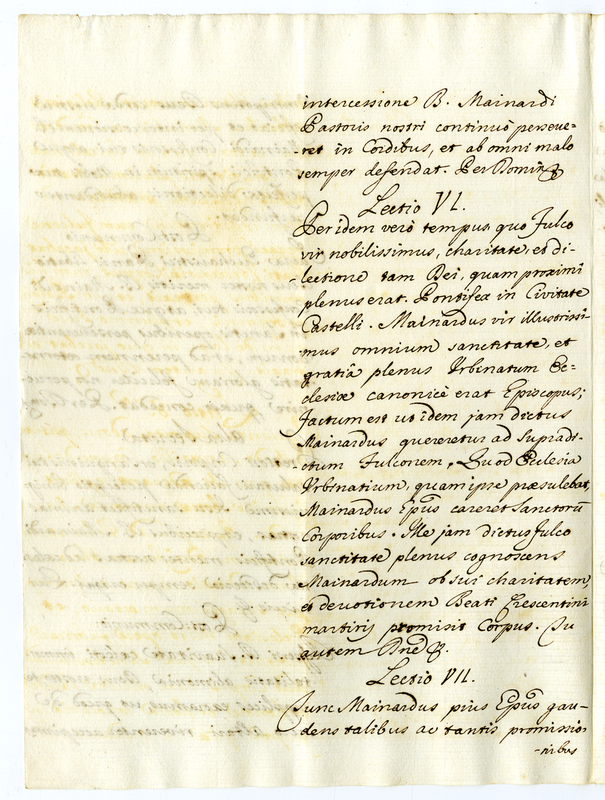 intercessione B. Mainardi
Pastoris nostri continuò perseve=
-ret in Cordibus, et ab omni malo
semper defendat. Per Domin &
Lectio VI.
Per idem verò tempus, quo Fulco
vir nobilissimus, charitate, et di-
-lectione tam Dei, quam proximi
plenus erat. Pontifex in Civitate
Castelli. Mainardus vir illustrissi-
mus omnium sanctitate, et
gratiâ plenus Urbinatum Ec-
clesiæ canonicè erat Episcopus;
factum est ut idem jam dictus
Mainardus quereretur ad supradi-
ctum Fulconem, Quod Ecclesia
Urbinatium, quam ipse præsulebat,
Mainardus Epũs careret Sanctorũ
Corporibus. Me jam dictus Fulco
sanctitate plenus cognoscens
Mainardum ob sui charitatem,
et devotionem Beati Crescentini
martirij promisit Corpus. Tu
autem Dnẽ &.
Lectio VII.
Tunc Mainardus pius Epũs gau-
dens talibus ac tantis promissio-
-nibus